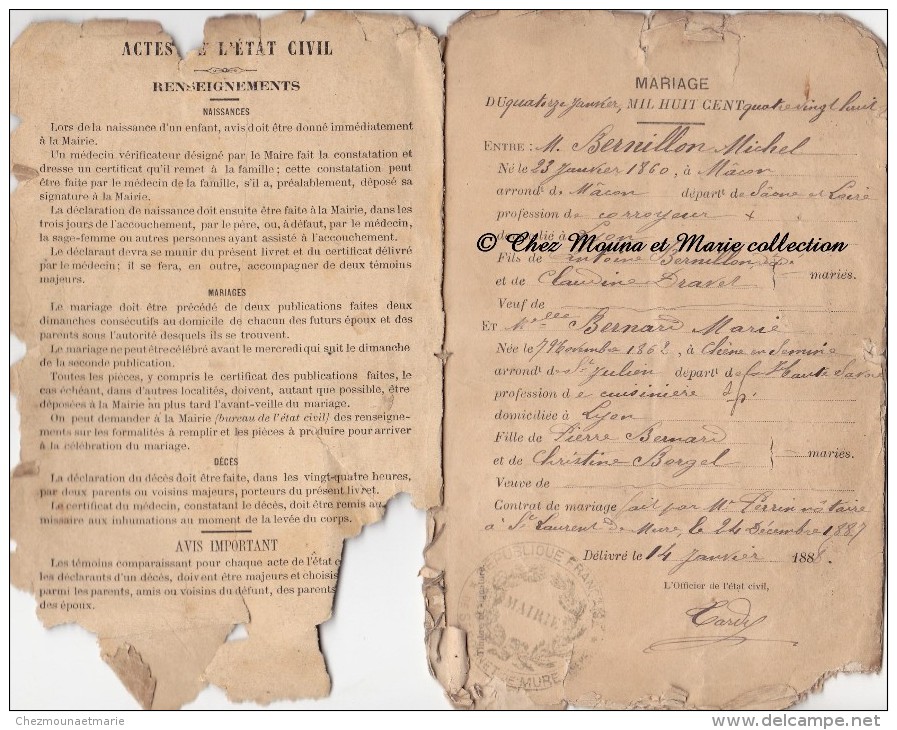 ACTES DE L'ÉTAT CIVIL
RENSEIGNEMENTS
NAISSANCES
Lors de la naissance d'un enfant, avis doit être donné immédiatement
à la Mairie.
Un médecin vérificateur désigné par le Maire fait la constatation et
dresse un certificat qu'il remet à la famille ; cette constatation peut
être faite par le médecin de la famille, s'il a, préalablement, déposé sa
signature à la Mairie.
La déclaration de naissance doit ensuite être faite à la Mairie, dans les
trois jours de l'accouchement, par le père, ou, à défaut, par le médecin,
la sage-femme ou autres personnes ayant assisté à l'accouchement.
Le déclarant devra se munir du présent livret et du certificat délivré
par le médecin ; il se fera, en outre, accompagner de deux témoins
majeurs.
MARIAGES
Le mariage doit être précédé de deux publications faites deux
dimanches consécutifs au domicile de chacun des futurs époux et des
parents sous l'autorité desquels ils se trouvent.
Le mariage ne peut être célébré avant le mercredi qui suit le dimanche
de la seconde publication.
Toutes les pièces, y compris le certificat des publications faites, le
cas échéant, dans d'autres localités, doivent, autant que possible, être
déposées à la Mairie au plus tard l'avant-veille du mariage.
On peut demander à la Mairie (bureau de l'état civil) des renseigne-
ments sur les formalités à remplir et les pièces à produire pour arriver
à la célébration du mariage.
DÉCÈS
La déclaration du décès doit être faite, dans les vingt-quatre heures,
par deux parents ou voisins majeurs, porteurs du présent livret.
Le certificat du médecin, constatant le décès, doit être remis au
missaire aux inhumations au moment de la levée du corps.
AVIS IMPORTANT
Les témoins comparaissant pour chaque acte de l'état c
les déclarants d'un décès, doivent être majeurs et choisis
parmi les parents, amis ou voisins du défunt, des parents
des époux.
MARIAGE
DU quatorze Janvier, MIL HUIT CENT quatre vingt huit
ENTRE : M. Bernillon Michel
Né le 23 Janvier 1860, à Mâcon
arrondt de Mâcon départt de Saône et Loire
profession de corroyeur
domicilié à Lyon
© Chez Mouna et Marie collection
Fils de Antoine Bernillon
et de Claudine Dravet
mariés.
Veuf de
ET Melle Bernard Marie
Née le 7 Novembre 1862, à Chêne en Semine
arrondt de St Julien départt de la Haute Savoie
profession de cuisinière
domiciliée à Lyon
Fille de Pierre Bernard
et de Christine Borgel
mariés.
Veuve de
Contrat de mariage fait par Me Perrin notaire
à St Laurent de Mure, le 24 Décembre 1887
Délivré le 14 Janvier 1888.
L'Officier de l'état civil,
RÉPUBLIQUE FRANÇAISE
MAIRIE
DE MURE
Chezmounaetmarie
www.delcampe.net